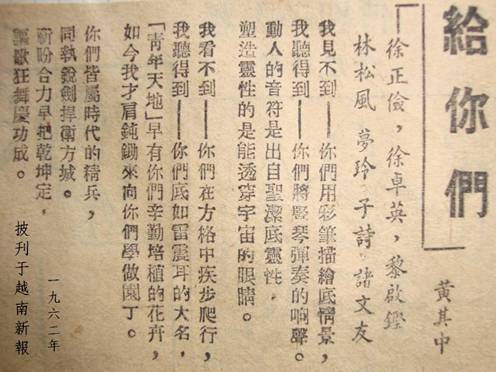 給你們
黃其中
「徐正儉，徐卓英，黎啟鏗
林松風，夢玲，子詩，諸文友
我見不到——你們用彩筆描繪底情景，
我聽得到——你們將豎琴彈奏的响聲。
動人的音符是出自聖潔底靈性，
塑造靈性的是能透穿宇宙的眼睛。
我看不到——你們在方格中疾步爬行，
我聽得到——你們底如雷震耳的大名，
「靑年天地」早有你們辛勤培植的花卉，
如今我才肩鈍鋤來向你們學做園丁。
你們皆屬時代的精兵，
同執銳劍捍衛方城。
祈盼合力早把乾坤定，
歌狂舞慶功成。
披刊于越南新報
一九六二年